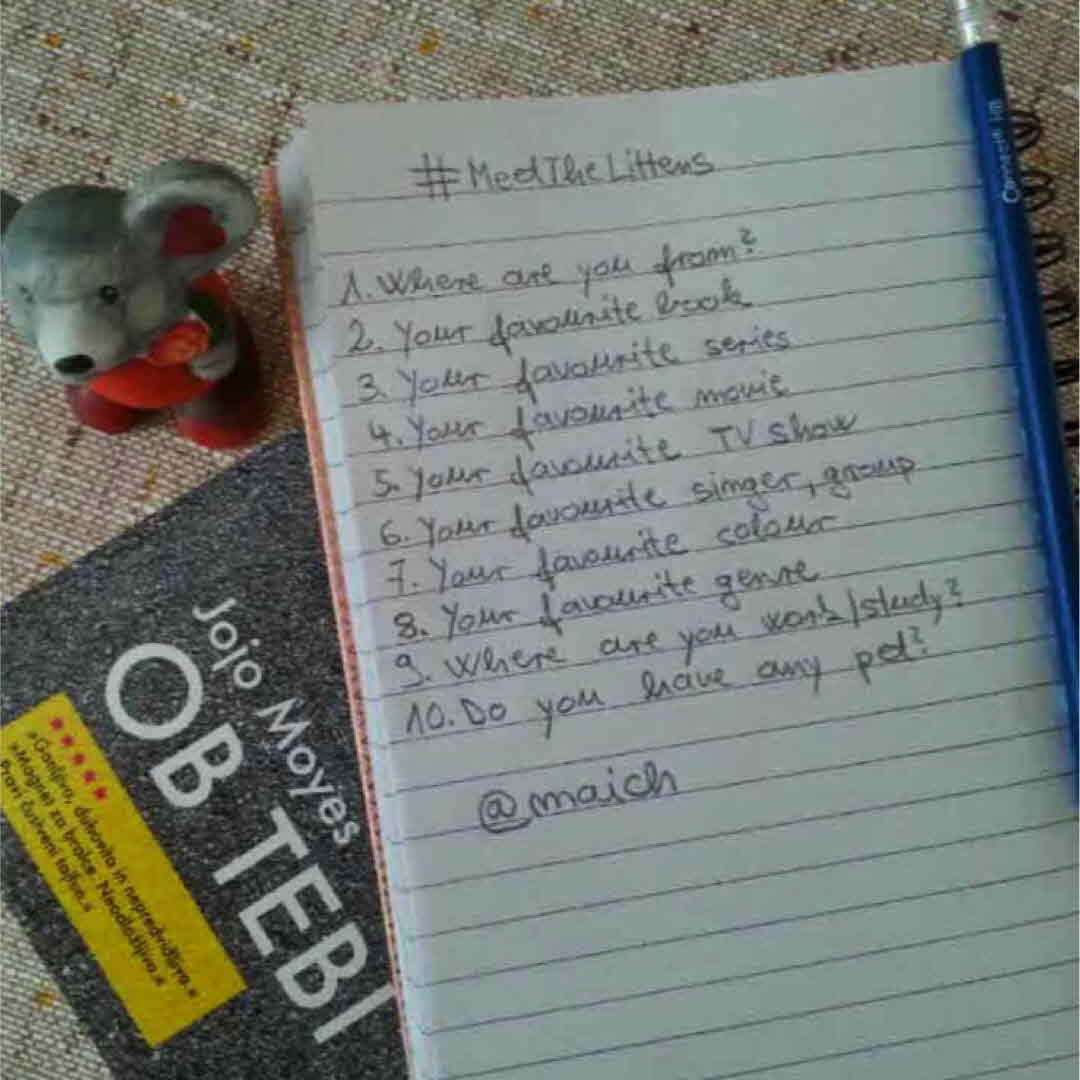 #MeetTheLittens
1. Where are you from?
2. Your favourite book
3. Your favourite series
4. Your favourite movie
5. Your favourite TV show
6. Your favourite singer, group
7. Your favourite colour
8. Your favourite genre
9. Where are you work/study?
10. Do you have any pet?
@maich
Jojo Moyes
OB TEBI
»Ganljivo, duhovito in nepredvidljivo.«